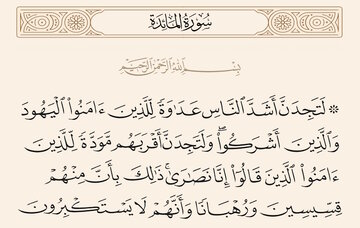 سُورَةُ المَائِدَةِ
بِسْمِ ٱللَّهِ ٱلرَّحْمَٰنِ ٱلرَّحِيمِ
۞ لَتَجِدَنَّ أَشَدَّ ٱلنَّاسِ عَدَٰوَةً لِّلَّذِينَ ءَامَنُوا۟ ٱلْيَهُودَ
وَٱلَّذِينَ أَشْرَكُوا۟ۖ وَلَتَجِدَنَّ أَقْرَبَهُم مَّوَدَّةً لِّلَّذِينَ
ءَامَنُوا۟ ٱلَّذِينَ قَالُوٓا۟ إِنَّا نَصَٰرَىٰۚ ذَٰلِكَ بِأَنَّ مِنْهُمْ
قِسِّيسِينَ وَرُهْبَانًا وَأَنَّهُمْ لَا يَسْتَكْبِرُونَ